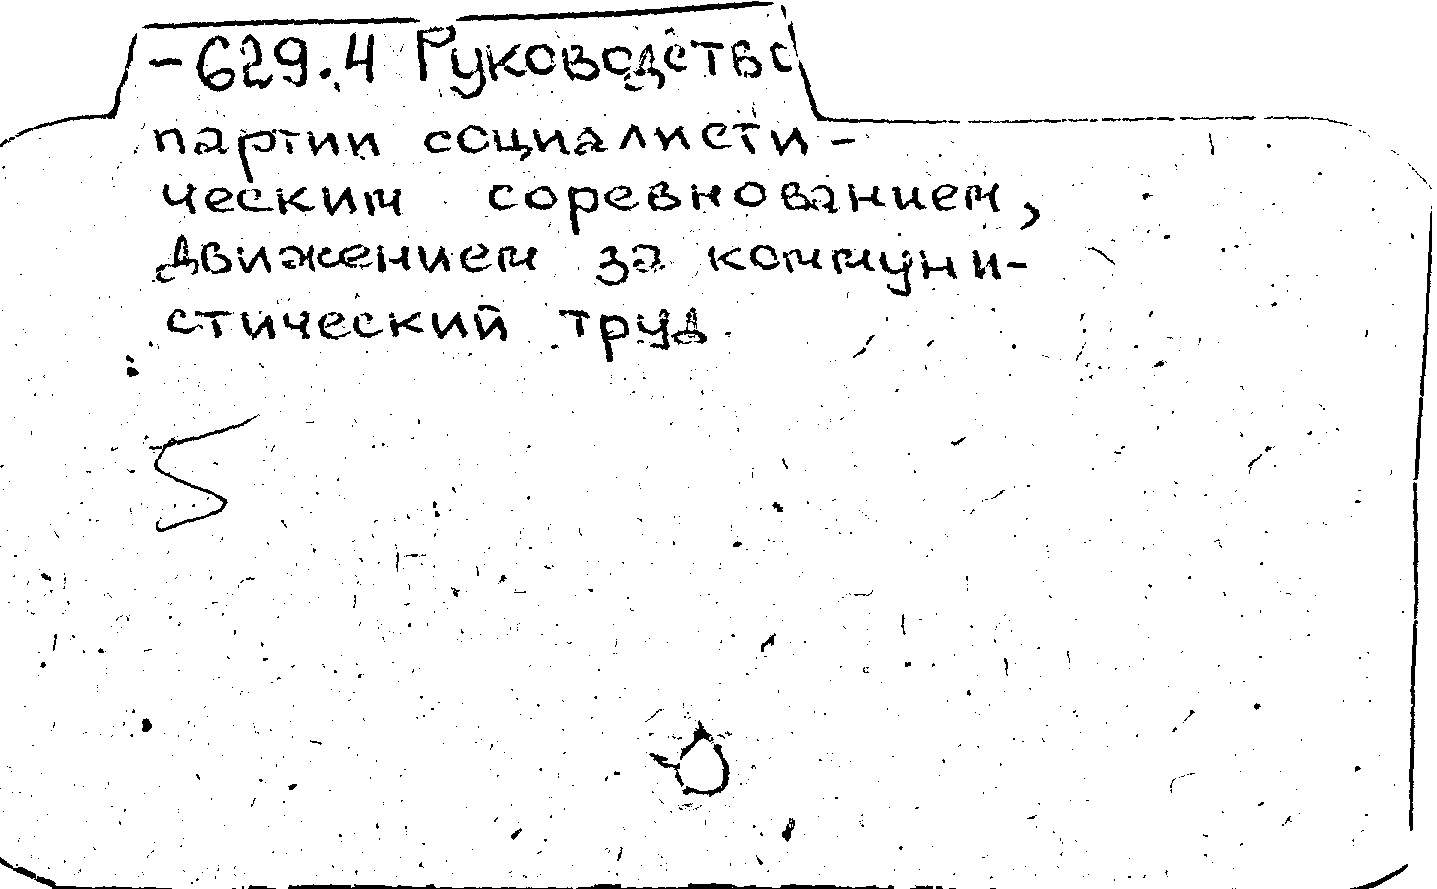 -629.4 Руководство
партии социалисти-
ческим соревнованием,
движением за коммуни-
стический труд